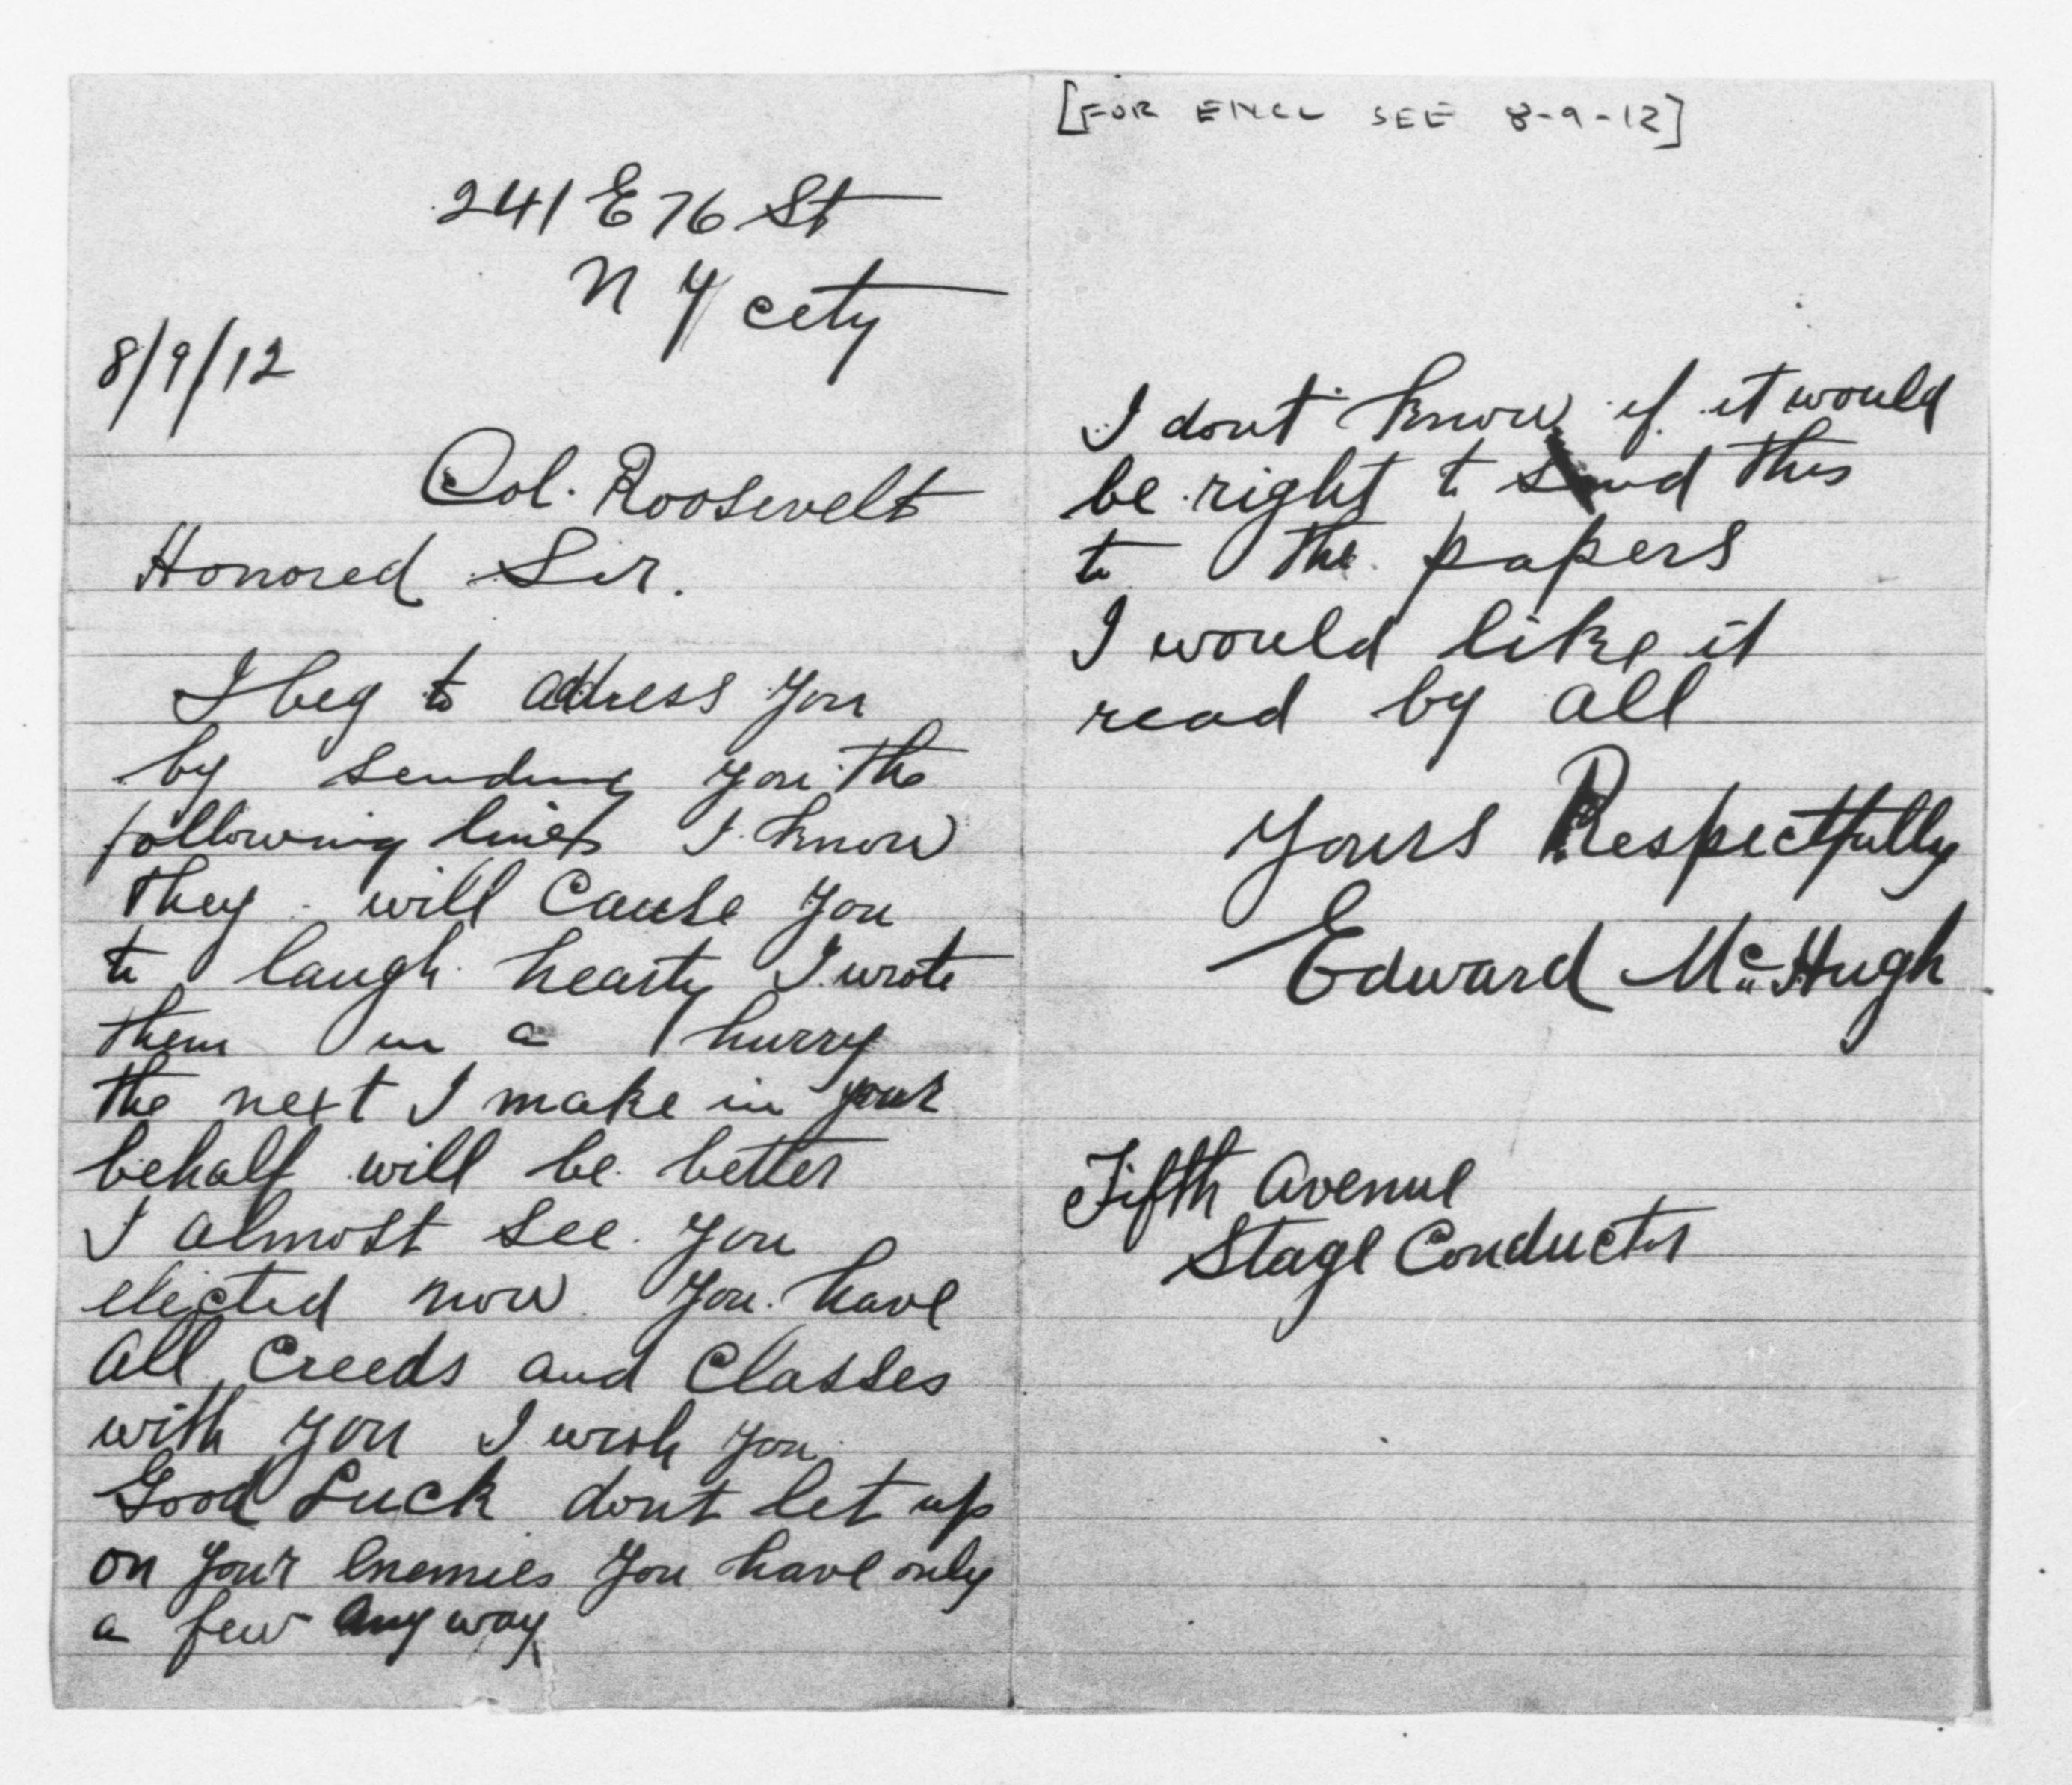 241 E 76 St
N Y city
8/9/12
Col. Roosevelt
Honored Sir.
I beg to address you
by sending you the
following lines I know
they will cause you
to laugh hearty I wrote
them in a hurry
the next I make in your
behalf will be better
I almost see you
elected now you have
all creeds and classes
with you I wish you
Good Luck dont let up
on your enemies you have only
a few any way
[FOR ENCL SEE 8-9-12]
I dont know if it would
be right to send this
to the papers
I would like it
read by all
Yours Respectfully
Edward McHugh
Fifth Avenue
Stage Conductor